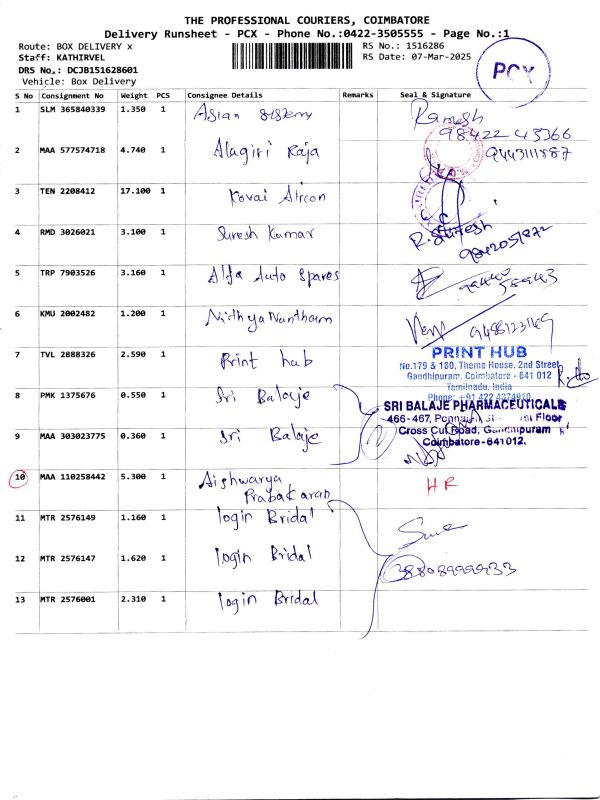 THE PROFESSIONAL COURIERS, COIMBATORE
Delivery Runsheet - PCX - Phone No.:0422-3505555 - Page No.:1
Route: BOX DELIVERY x
RS No.: 1516286
Staff: KATHIRVEL
RS Date: 07-Mar-2025
DRS No.: DCJB151628601
Vehicle: Box Delivery
PCX
S No Consignment No Weight PCS Consignee Details Remarks Seal & Signature
1 SLM 365840339 1.350 1 Asian Ramesh
98422 43366
2 MAA 577574718 4.740 1 Alagiri Raja 9443111887
3 TEN 2208412 17.100 1 Kovai Aircon
4 RMD 3026021 3.100 1 Suresh Kumar R. Suresh
5 TRP 7903526 3.160 1 Alfa Auto Spares
6 KMU 2002482 1.200 1 Nithyanantham
7 TVL 2888326 2.590 1 Print hub
PRINT HUB
No.179 & 180, Theme House, 2nd Street,
Gandhipuram, Coimbatore - 641 012
Tamilnadu, India
Phone: +91 422 4374910
8 PMK 1375676 0.550 1 Sri Balaje
SRI BALAJE PHARMACEUTICALS
466-467, Floor
9 MAA 303023775 0.360 1 Sri Balaje
Cross Cut Road, Gandhipuram
Coimbatore-641012.
10 MAA 110258442 5.300 1 Aishwarya Prabakaran HR
11 MTR 2576149 1.160 1 login Bridal
12 MTR 2576147 1.620 1 login Bridal
13 MTR 2576001 2.310 1 login Bridal